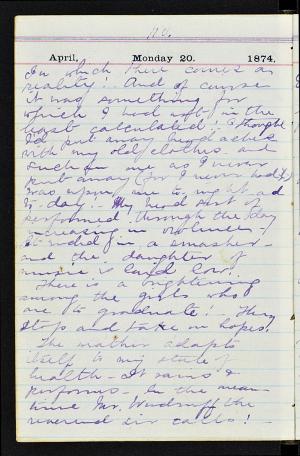 April, Monday 20. 1874.
In which there comes a
reality! And of course
it was something for
which I had not in the
least calculated; I thought
I'd put away head aches
with my old clothes and
such one as I never
put away (for I never had it)
was upon me to-night and
to-day! My head sort of
performed through the day
increasing in violence -
It ended in a smasher -
and the daughter of
music is laid low!
There is a brightening
among the girls who
are to graduate! They
stop and take on hopes!
The weather adapts
itself to my state of
health - It rains &
performs. In the mean-
time Mr. Woodruff the
reverend sir calls! -